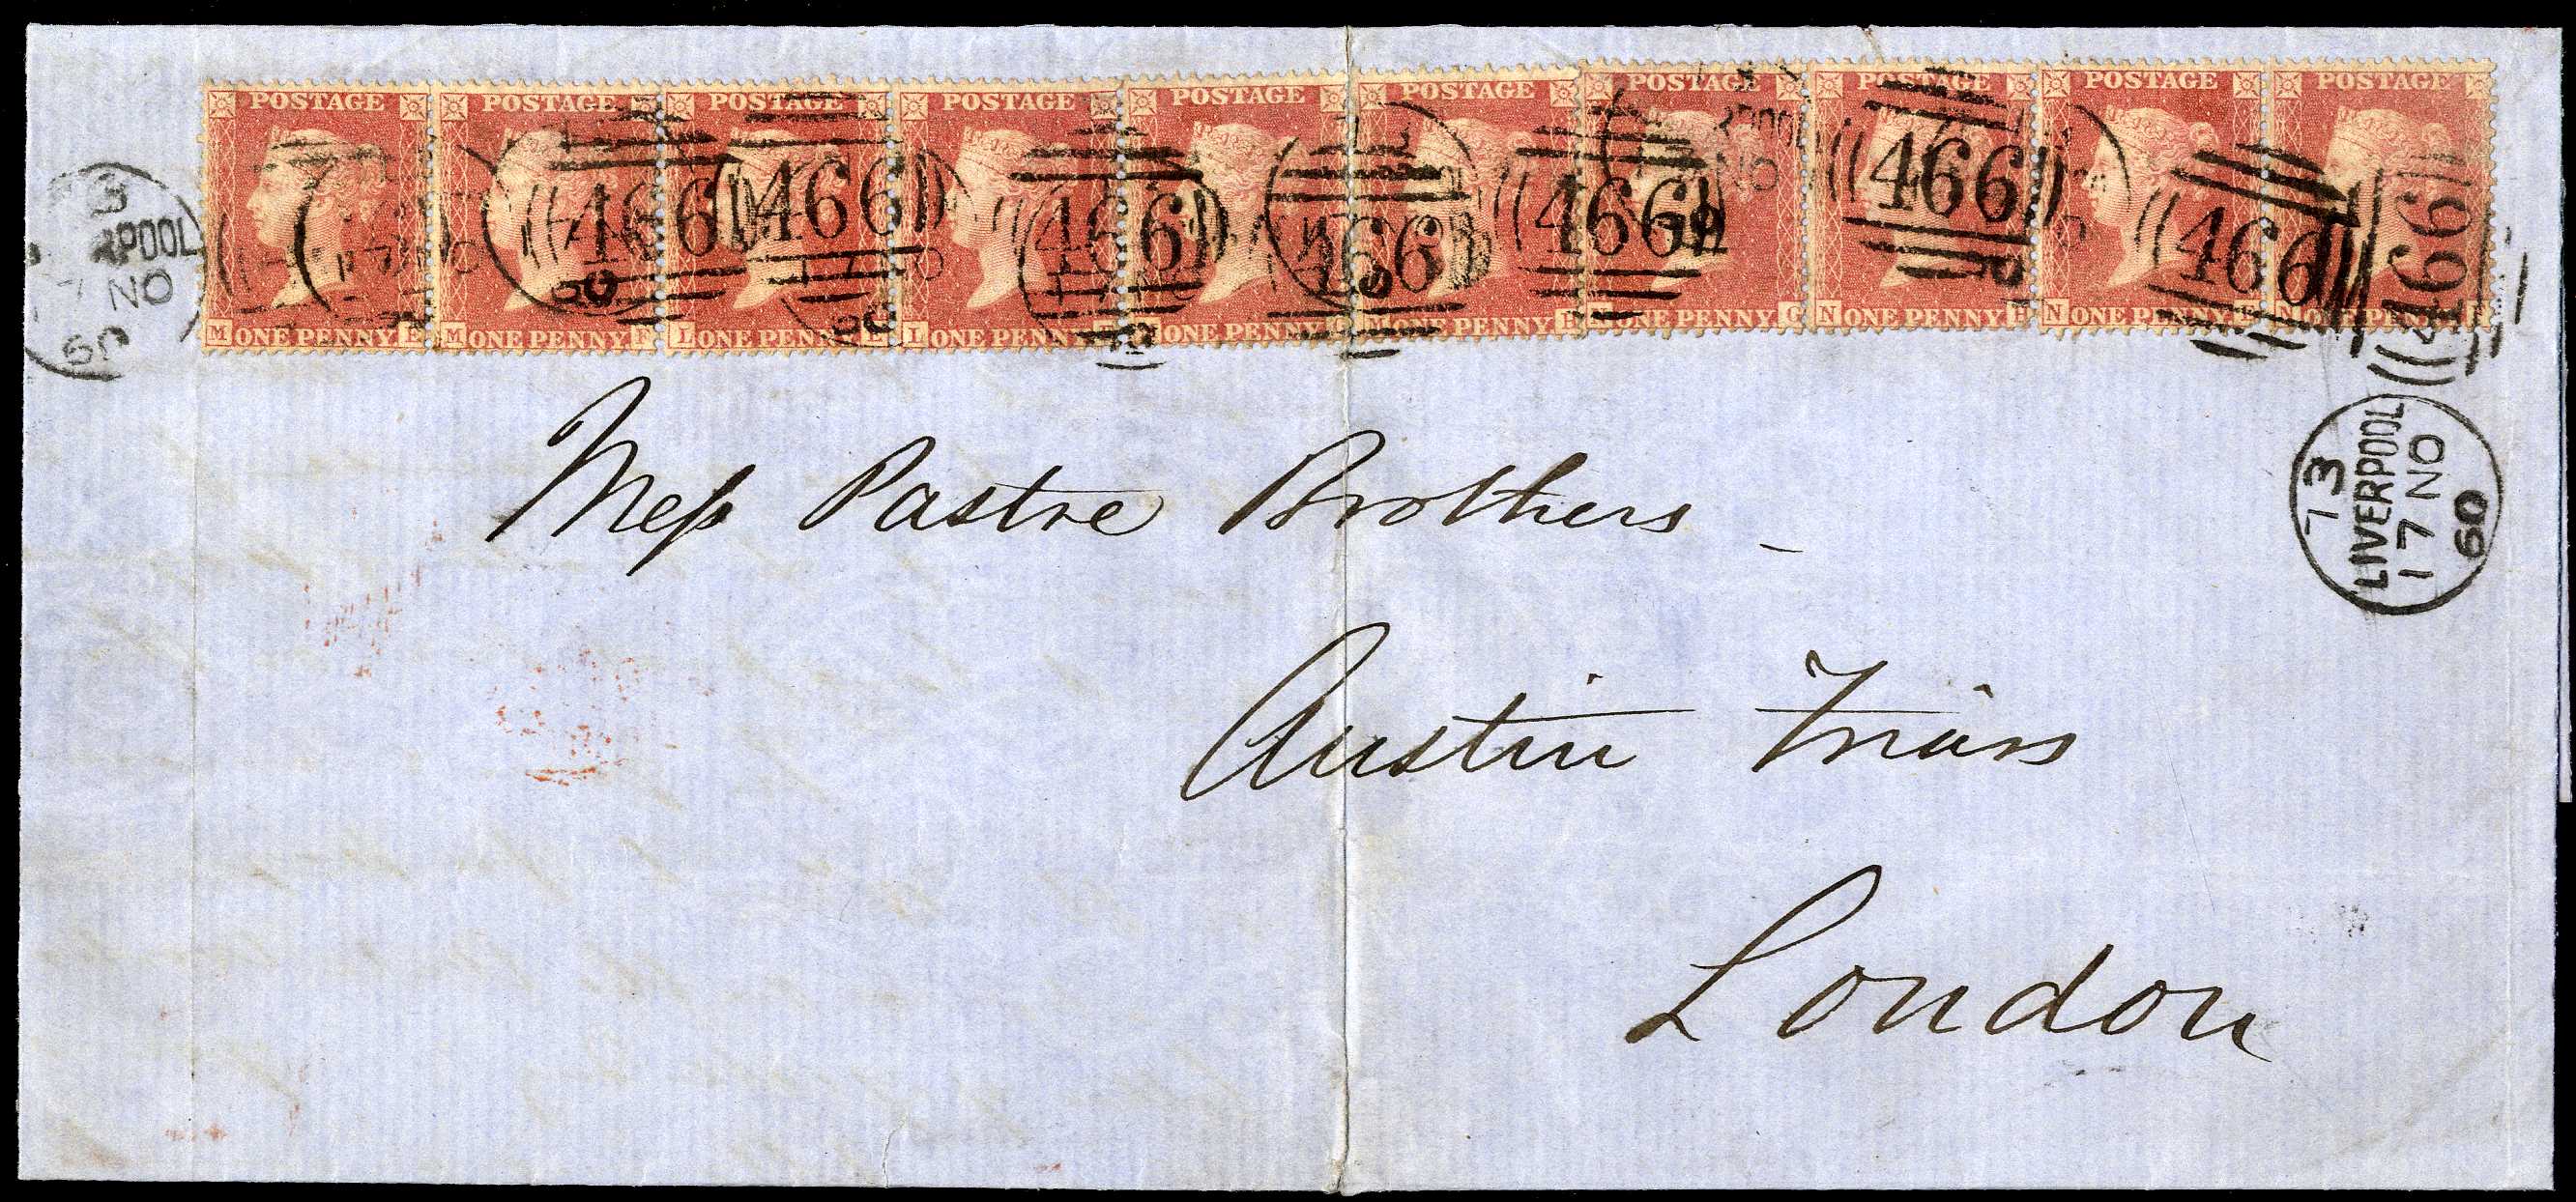 POSTAGE POSTAGE POSTAGE POSTAGE POSTAGE POSTAGE POSTAGE POSTAGE POSTAGE POSTAGE
466 466 466 466 466 466 466 466 466
M ONE PENNY E M ONE PENNY F L ONE PENNY E L ONE PENNY ONE PENNY ONE PENNY ONE PENNY G N ONE PENNY H N ONE PENNY N
3
RPOOL
7 NO
60
73
LIVERPOOL
17 NO
60
Mess Pastre Brothers -
Austin Friars
London